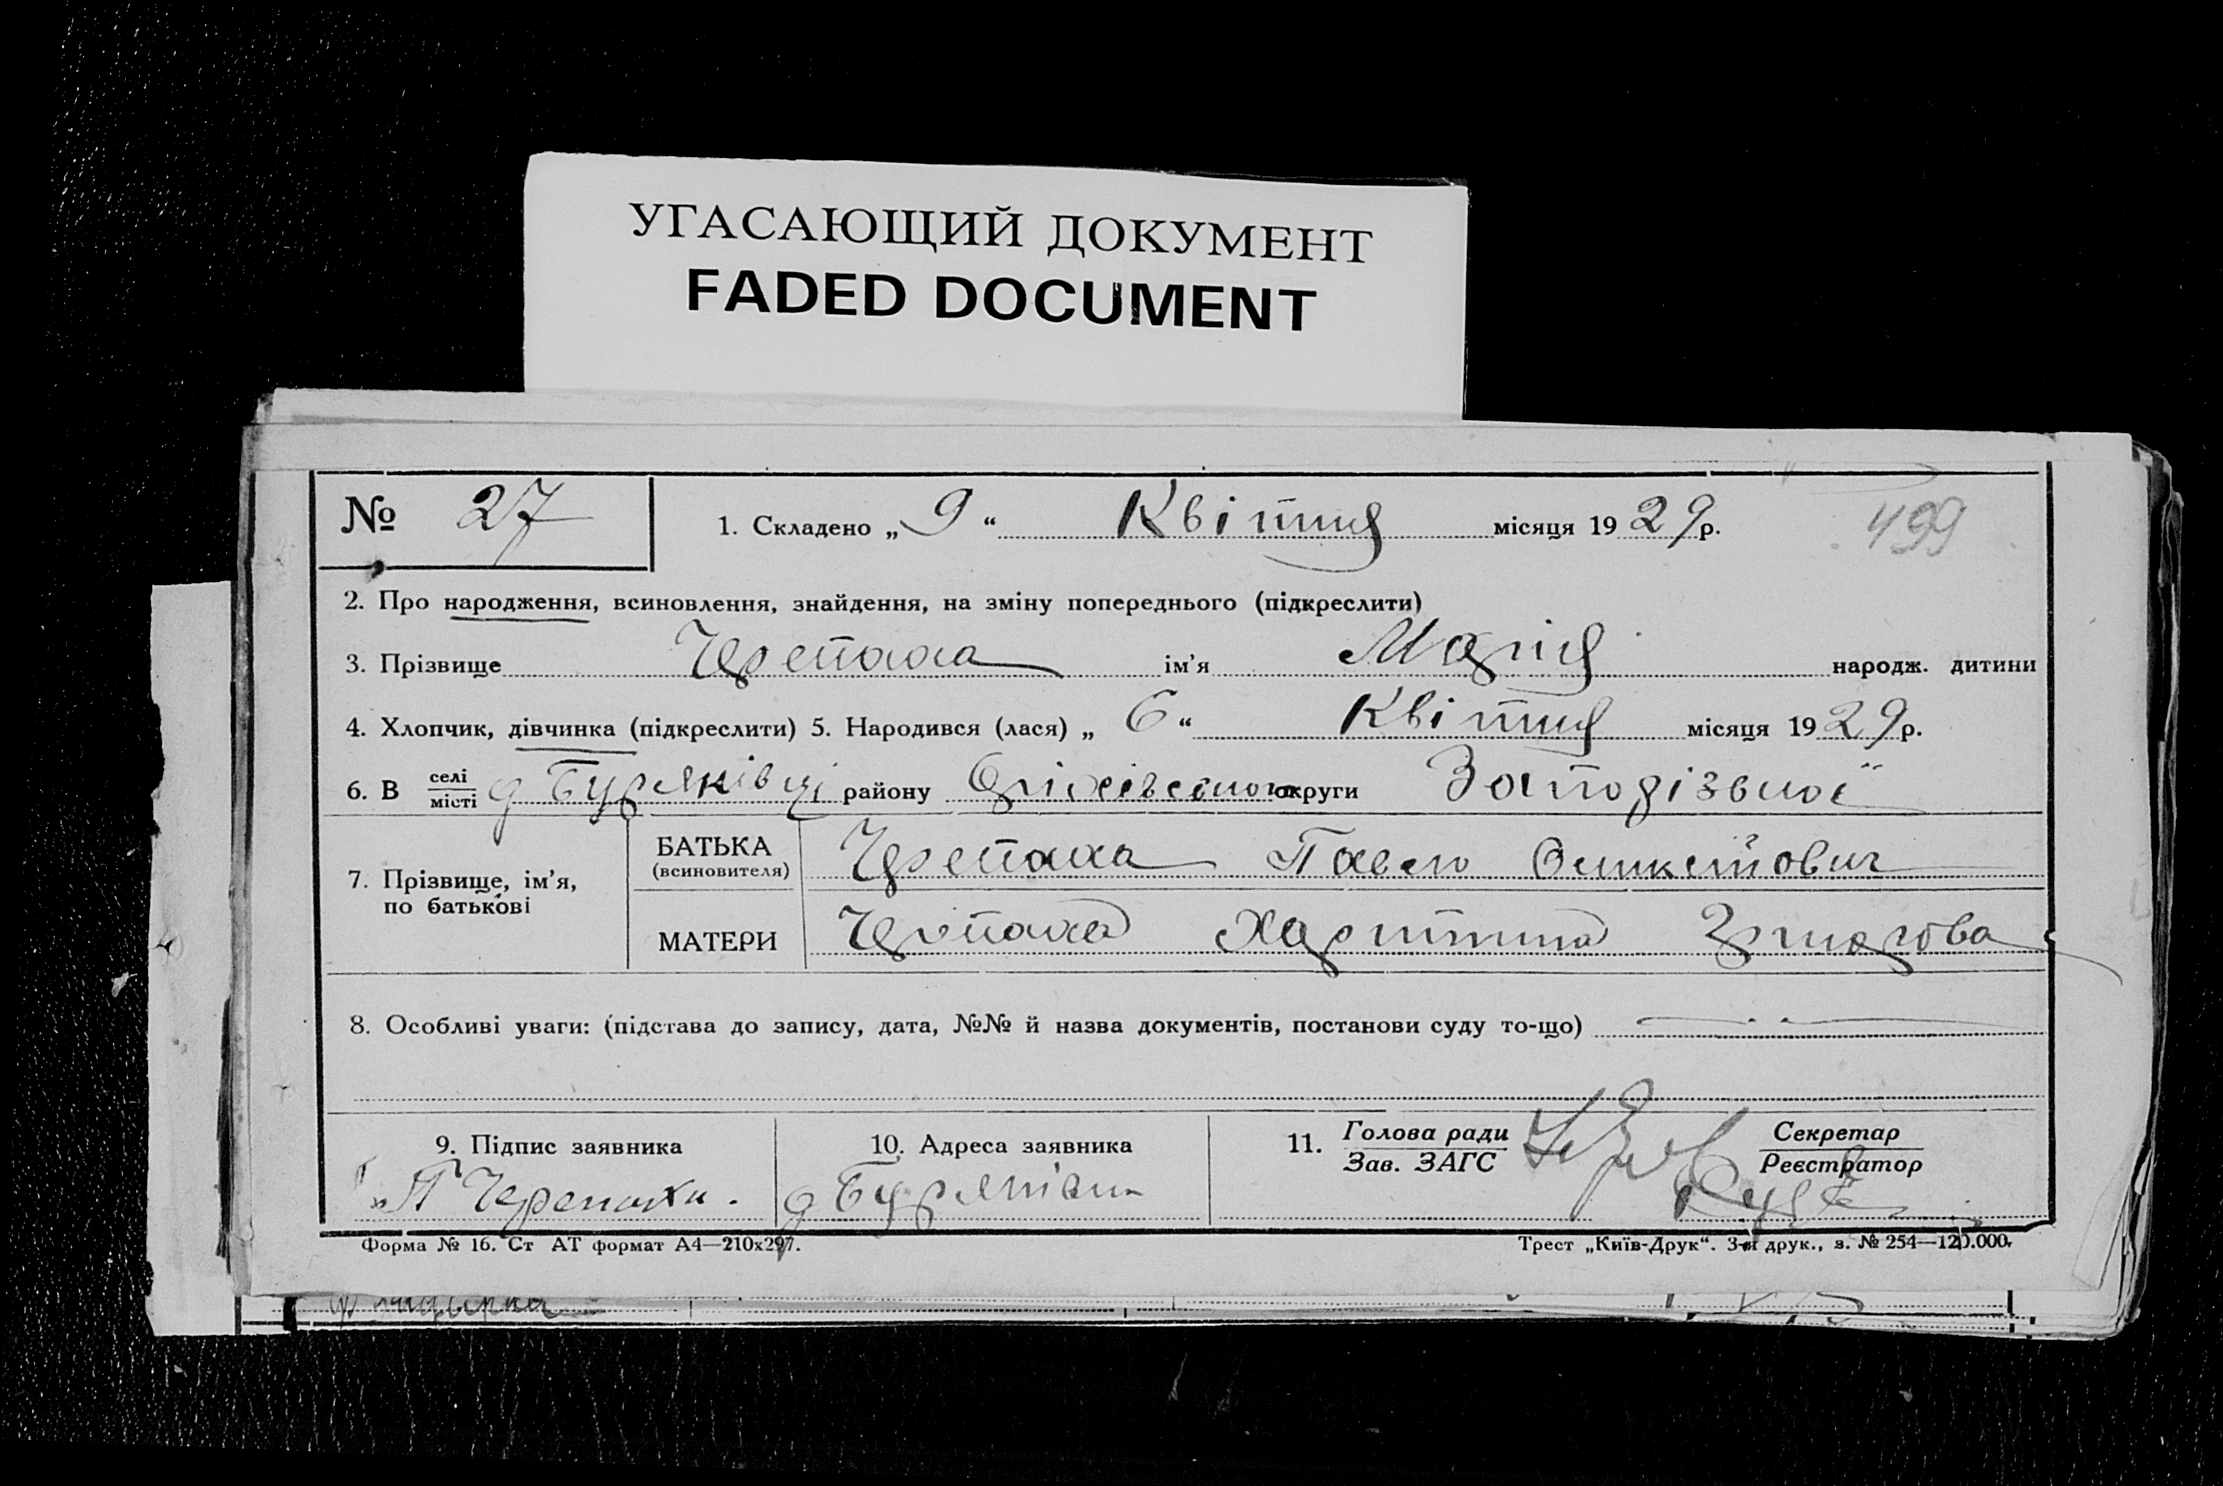 УГАСАЮЩИЙ ДОКУМЕНТ
FADED DOCUMENT
№ 27
1. Складено „9“ Квітня місяця 1929р.
499
2. Про народження, всиновлення, знайдення, на зміну попереднього (підкреслити)
3. Прізвище Черепаха ім’я Марія народж. дитини
4. Хлопчик, дівчинка (підкреслити) 5. Народився (лася) „6“ Квітня місяця 1929р.
6. В селі місті д Буряківці району Оріхівського округи Запорізької
7. Прізвище, ім’я, по батькові
БАТЬКА (всиновителя) Черепаха Павло
МАТЕРИ Черепаха Харитина
8. Особливі уваги: (підстава до запису, дата, №№ й назва документів, постанови суду то-що)
9. Підпис заявника
П Черепаха.
10. Адреса заявника
д
11. Голова ради Зав. ЗАГС
Секретар Реєстратор
Форма № 16. Ст АТ формат А4—210х297.
Трест „Київ-Друк“. 3-я друк., з. № 254—120.000.